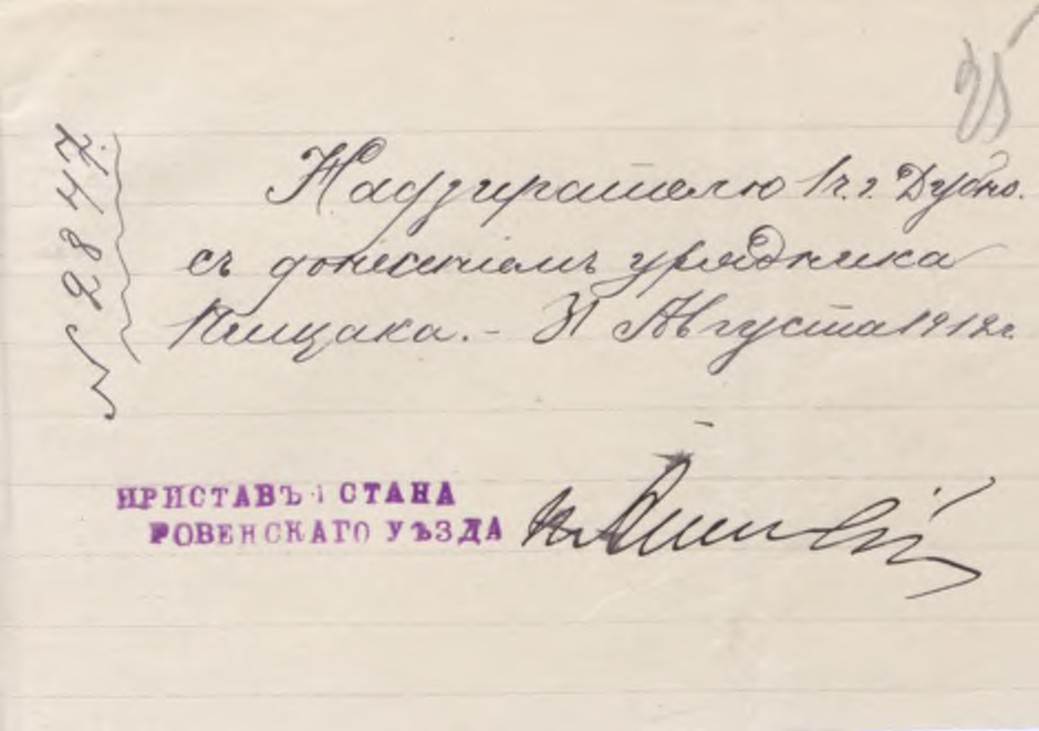 № 2847.
Надзирателю 1 ч. г. Дубно.
съ донесеніемъ урядника
Пищака. - 31 Августа 1912 г.
ПРИСТАВЪ 1 СТАНА
РОВЕНСКАГО УѢЗДА